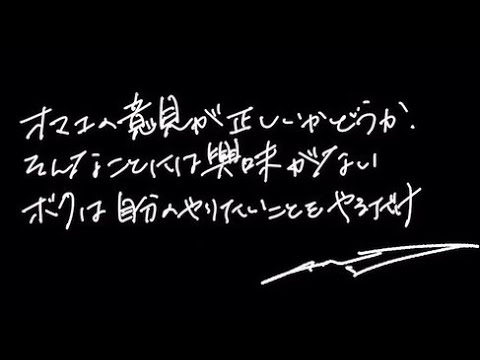 オマエの意見が正しいかどうか.
そんなことには興味がない
ボクは自分のやりたいことをやるだけ